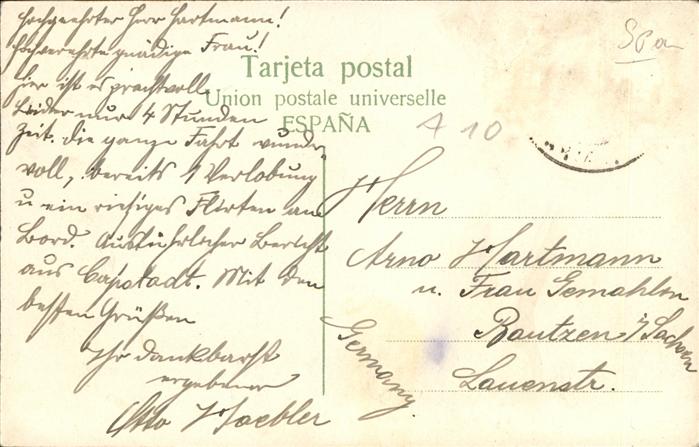 Hochgeehrter Herr Hartmann!
Hochverehrte gnädige Frau!
Hier ist es prachtvoll
Leider nur 4 Stunden
Zeit. Die ganze Fahrt wunder-
voll, bereits 1 Verlobung
u ein riesiges Flirten an
Bord. Ausführlicher Bericht
aus Capstadt. Mit den
besten Grüßen
Ihr dankbarst
ergebener
Otto
Tarjeta postal
Union postale universelle
ESPAÑA
A 10
Herrn
Arno Hartmann
u. Frau Gemahlin
Bautzen i/Sachsen
Lauenstr.
Germany.